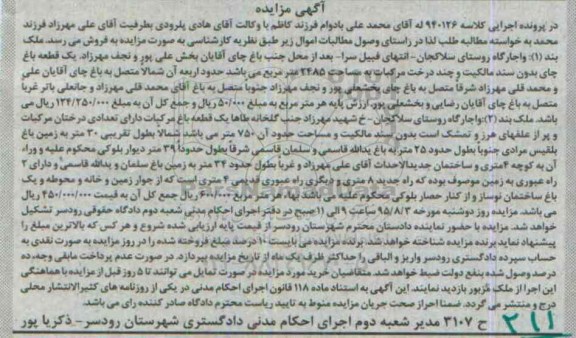 آگهی مزایده
در پرونده اجرایی کلاسه ۹۴۰۱۲۶ له آقای محمد علی بادوام فرزند کاظم با وکالت آقای هادی پلرودی بطرفیت آقای علی مهرزاد فرزند
محمد به خواسته مطالبه طلب لذا در راستای وصول مطالبات اموال زیر طبق نظریه کارشناسی به صورت مزایده به فروش می رسد. ملک
بند (۱): واجارگاه روستای سلاکجان- انتهای فیبل سرا- بعد از محل جنب باغ چای آقایان بخش علی پور و نجف مهرزاد. یک قطعه باغ
چای بدون سند مالکیت و چند درخت مرکبات به مساحت ۲۴۸۵ متر مربع می باشد حدود اربعه آن شمالا متصل به باغ چای آقایان علی
و محمد قلی مهرزاد شرقا متصل به باغ چای بخشعلی پور و نجف مهرزاد جنوبا متصل به باغ آقای محمد قلی مهرزاد و جانعلی باثر غربا
متصل به باغ چای آقایان رضایی و بخشعلی پور. ارزش پایه هر متر مربع به مبلغ ۵۰/۰۰۰ ریال و جمع کل آن به مبلغ ۱۲۴/۲۵۰/۰۰۰ ریال می
باشد. ملک بند (۲): واجارگاه روستای سلاکجان - خ شهید مهرزاد جنب گلخانه طاها یک قطعه باغ مرکبات دارای تعدادی درختان مرکبات
و پر از علفهای هرز و تمشک است بدون سند مالکیت و مساحت حدود آن ۷۵۰ متر می باشد شمالا بطول تقریبی ۳۰ متر به زمین باغ
بلقیس مرادی جنوبا بطول حدود ۲۵ متر به باغ یدالله قاسمی و سلمان قاسمی شرقا بطول حدودا ۳۹ متر دیوار بلوکی محکوم علیه و وراء
آن به کوچه ۴ متری و ساختمان جدیدالاحداث آقای علی مهرزاد و غربا بطول حدود ۳۴ متر به زمین باغ سلمان و یدالله قاسمی و دارای ۲
راه عبوری به زمین موصوف بوده که راه جدید ۸ متری و دیگری راه عبوری قدیمی ۴ متری است که از جوار زمین و خانه و محوطه و یک
باغ ساختمان نوساز و از کنار حصار بلوکی محکوم علیه می باشد بها، هر متر مربع ۶۰۰/۰۰۰ ریال جمع کل آن به قیمت ۴۵۰/۰۰۰/۰۰۰ ریال
می باشد. مزایده روز دوشنبه مورخه ۹۵/۸/۳ ساعت ۹ الی ۱۱ صبح در دفتر اجرای احکام مدنی شعبه دوم دادگاه حقوقی رودسر تشکیل
خواهد شد. مزایده با حضور نماینده دادستان محترم شهرستان رودسر از قیمت پایه ارزیابی شده شروع و هر کس که بالاترین مبلغ را
پیشنهاد نماید برنده مزایده شناخته خواهد شد. برنده مزایده می بایست ۱۰ درصد مبلغ فروخته شده را در روز مزایده به صورت نقدی به
حساب سپرده دادگستری رودسر واریز و الباقی را حداکثر ظرف یک ماه از تاریخ مزایده بپردازد. در صورت عدم پرداخت مابقی وجه، ده
درصد وصول شده بنفع دولت ضبط خواهد شد. متقاضیان خرید مورد مزایده در صورت تمایل می توانند تا ۵ روز قبل از مزایده با هماهنگی
این اجرا از ملک مزبور بازدید نمایند. این آگهی به استناد ماده ۱۱۸ قانون اجرای احکام مدنی در یکی از روزنامه های کثیرالانتشار محلی
درج و منتشر می گردد. ضمنا احراز صحت جریان مزایده منوط به تایید ریاست محترم دادگاه صادر کننده رای می باشد.
ح ۳۱۰۷ مدیر شعبه دوم اجرای احکام مدنی دادگستری شهرستان رودسر- ذکریا پور
۲۱۱